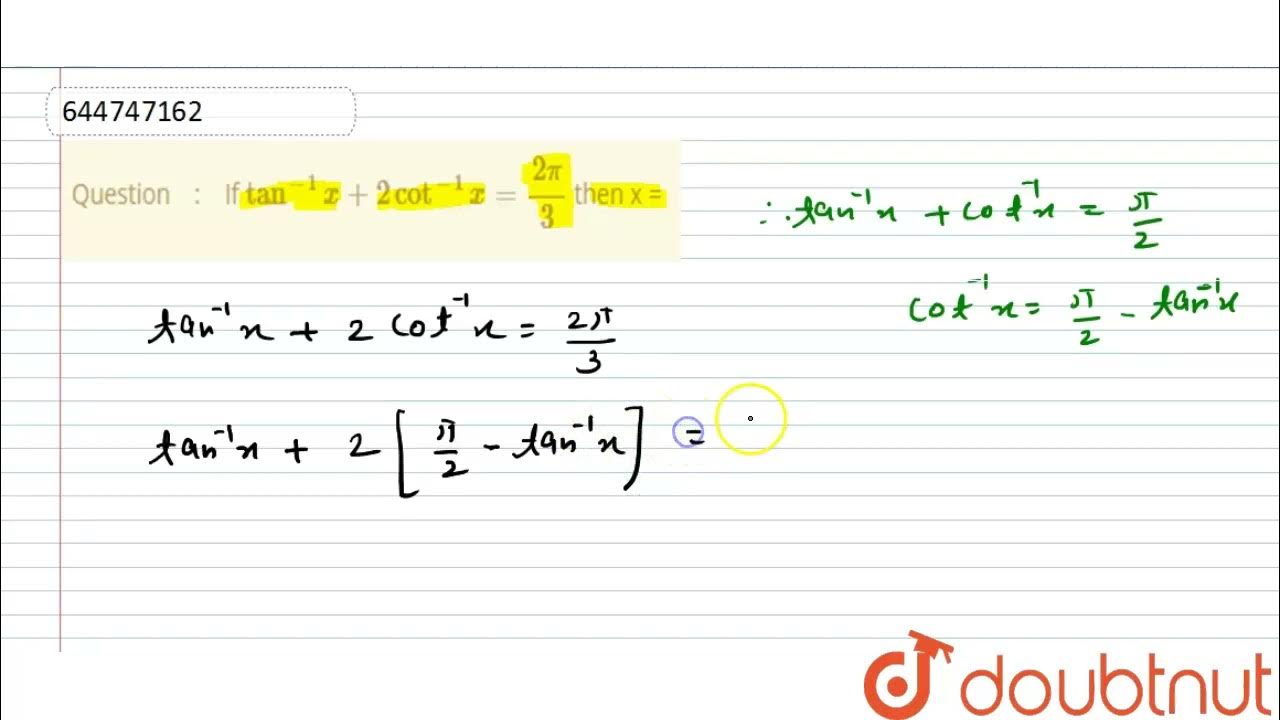 644747162
Question : If tan⁻¹ x + 2 cot⁻¹ x = 2π/3 then x =
∴ tan⁻¹x + cot⁻¹x = π/2
cot⁻¹x = π/2 - tan⁻¹x
tan⁻¹x + 2 cot⁻¹x = 2π/3
tan⁻¹x + 2 [π/2 - tan⁻¹x] =
doubtnut